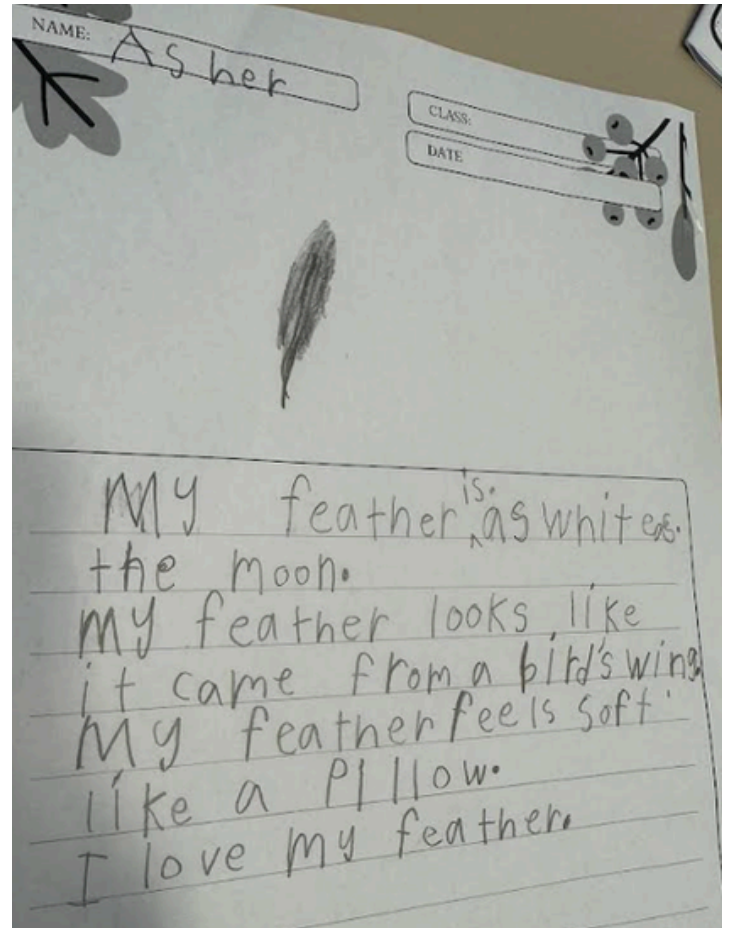 NAME: Asher
CLASS:
DATE
My feather is. as white as.
the moon.
my feather looks like
it came from a bird's wing.
My feather feels soft
like a Pillow.
I love my feather.